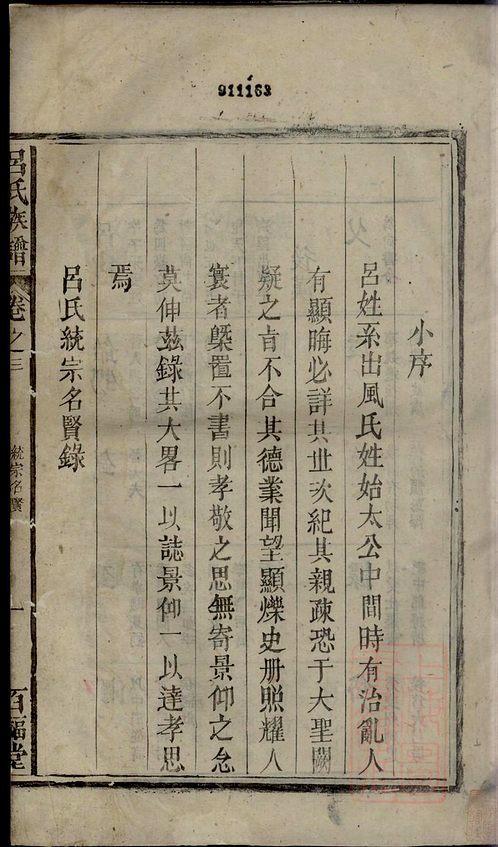 911163
小序
呂姓系出風氏姓始太公中間時有治亂人
有顯晦必詳其世次紀其親疎恐于大聖闕
疑之旨不合其德業聞望顯爍史册照耀人
寰者槩置不書則孝敬之思無寄景仰之念
莫伸兹錄其大畧一以誌景仰一以達孝思
焉
呂氏統宗名賢錄
呂氏族譜
卷之三
統宗名賢
一
百福堂